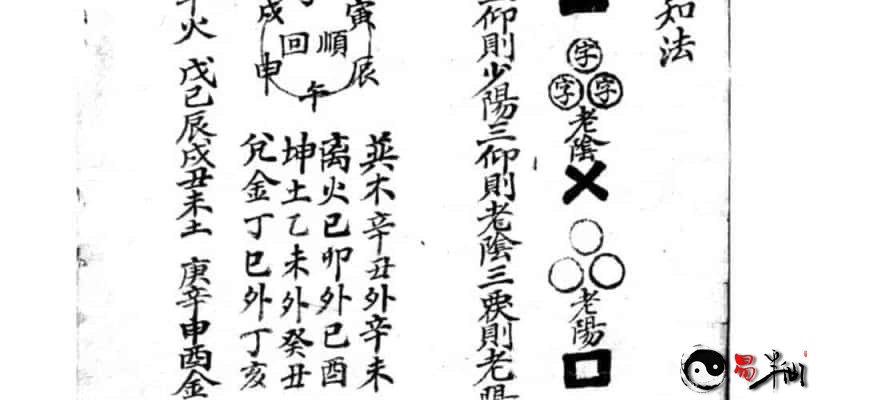 知法
字
字 字
老陰
老陽
仰則少陽三仰則老陰三覆則老陽
寅辰午申戌
順回
巽木辛丑外辛未
离火己卯外己酉
坤土乙未外癸丑
兌金丁巳外丁亥
火 戊己辰戌丑未土 庚辛申酉金
易半仙